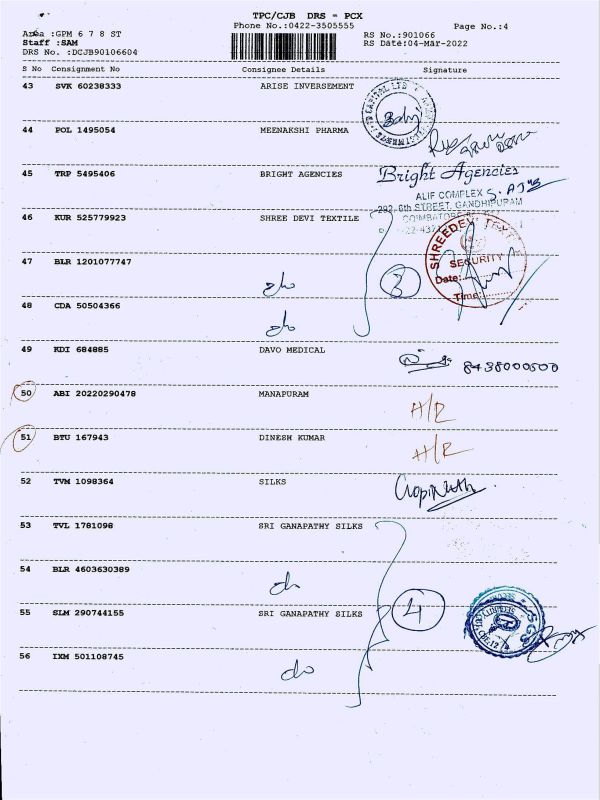 TPC/CJB DRS - PCX
Phone No.:0422-3505555
Page No.:4
Area :GPM 6 7 8 ST
Staff :SAM
DRS No. :DCJB90106604
RS No.:901066
RS Date:04-Mar-2022
S No Consignment No Consignee Details Signature
43 SVK 60238333 ARISE INVERSEMENT
44 POL 1495054 MEENAKSHI PHARMA
45 TRP 5495406 BRIGHT AGENCIES
Bright Agencies
ALIF COMPLEX
292, 6th STREET, GANDHIPURAM
COIMBATORE
46 KUR 525779923 SHREE DEVI TEXTILE
SHREEDEVI TEXTILE
SECURITY
Date:
Time:
47 BLR 1201077747 do
3
48 CDA 50504366 do
49 KDI 684885 DAVO MEDICAL 8438000500
50 ABI 20220290478 MANAPURAM A/R
51 BTU 167943 DINESH KUMAR A/R
52 TVM 1098364 SILKS Gopinath
53 TVL 1781098 SRI GANAPATHY SILKS
54 BLR 4603630389 do
4
55 SLM 290744155 SRI GANAPATHY SILKS
56 IXM 501108745 do